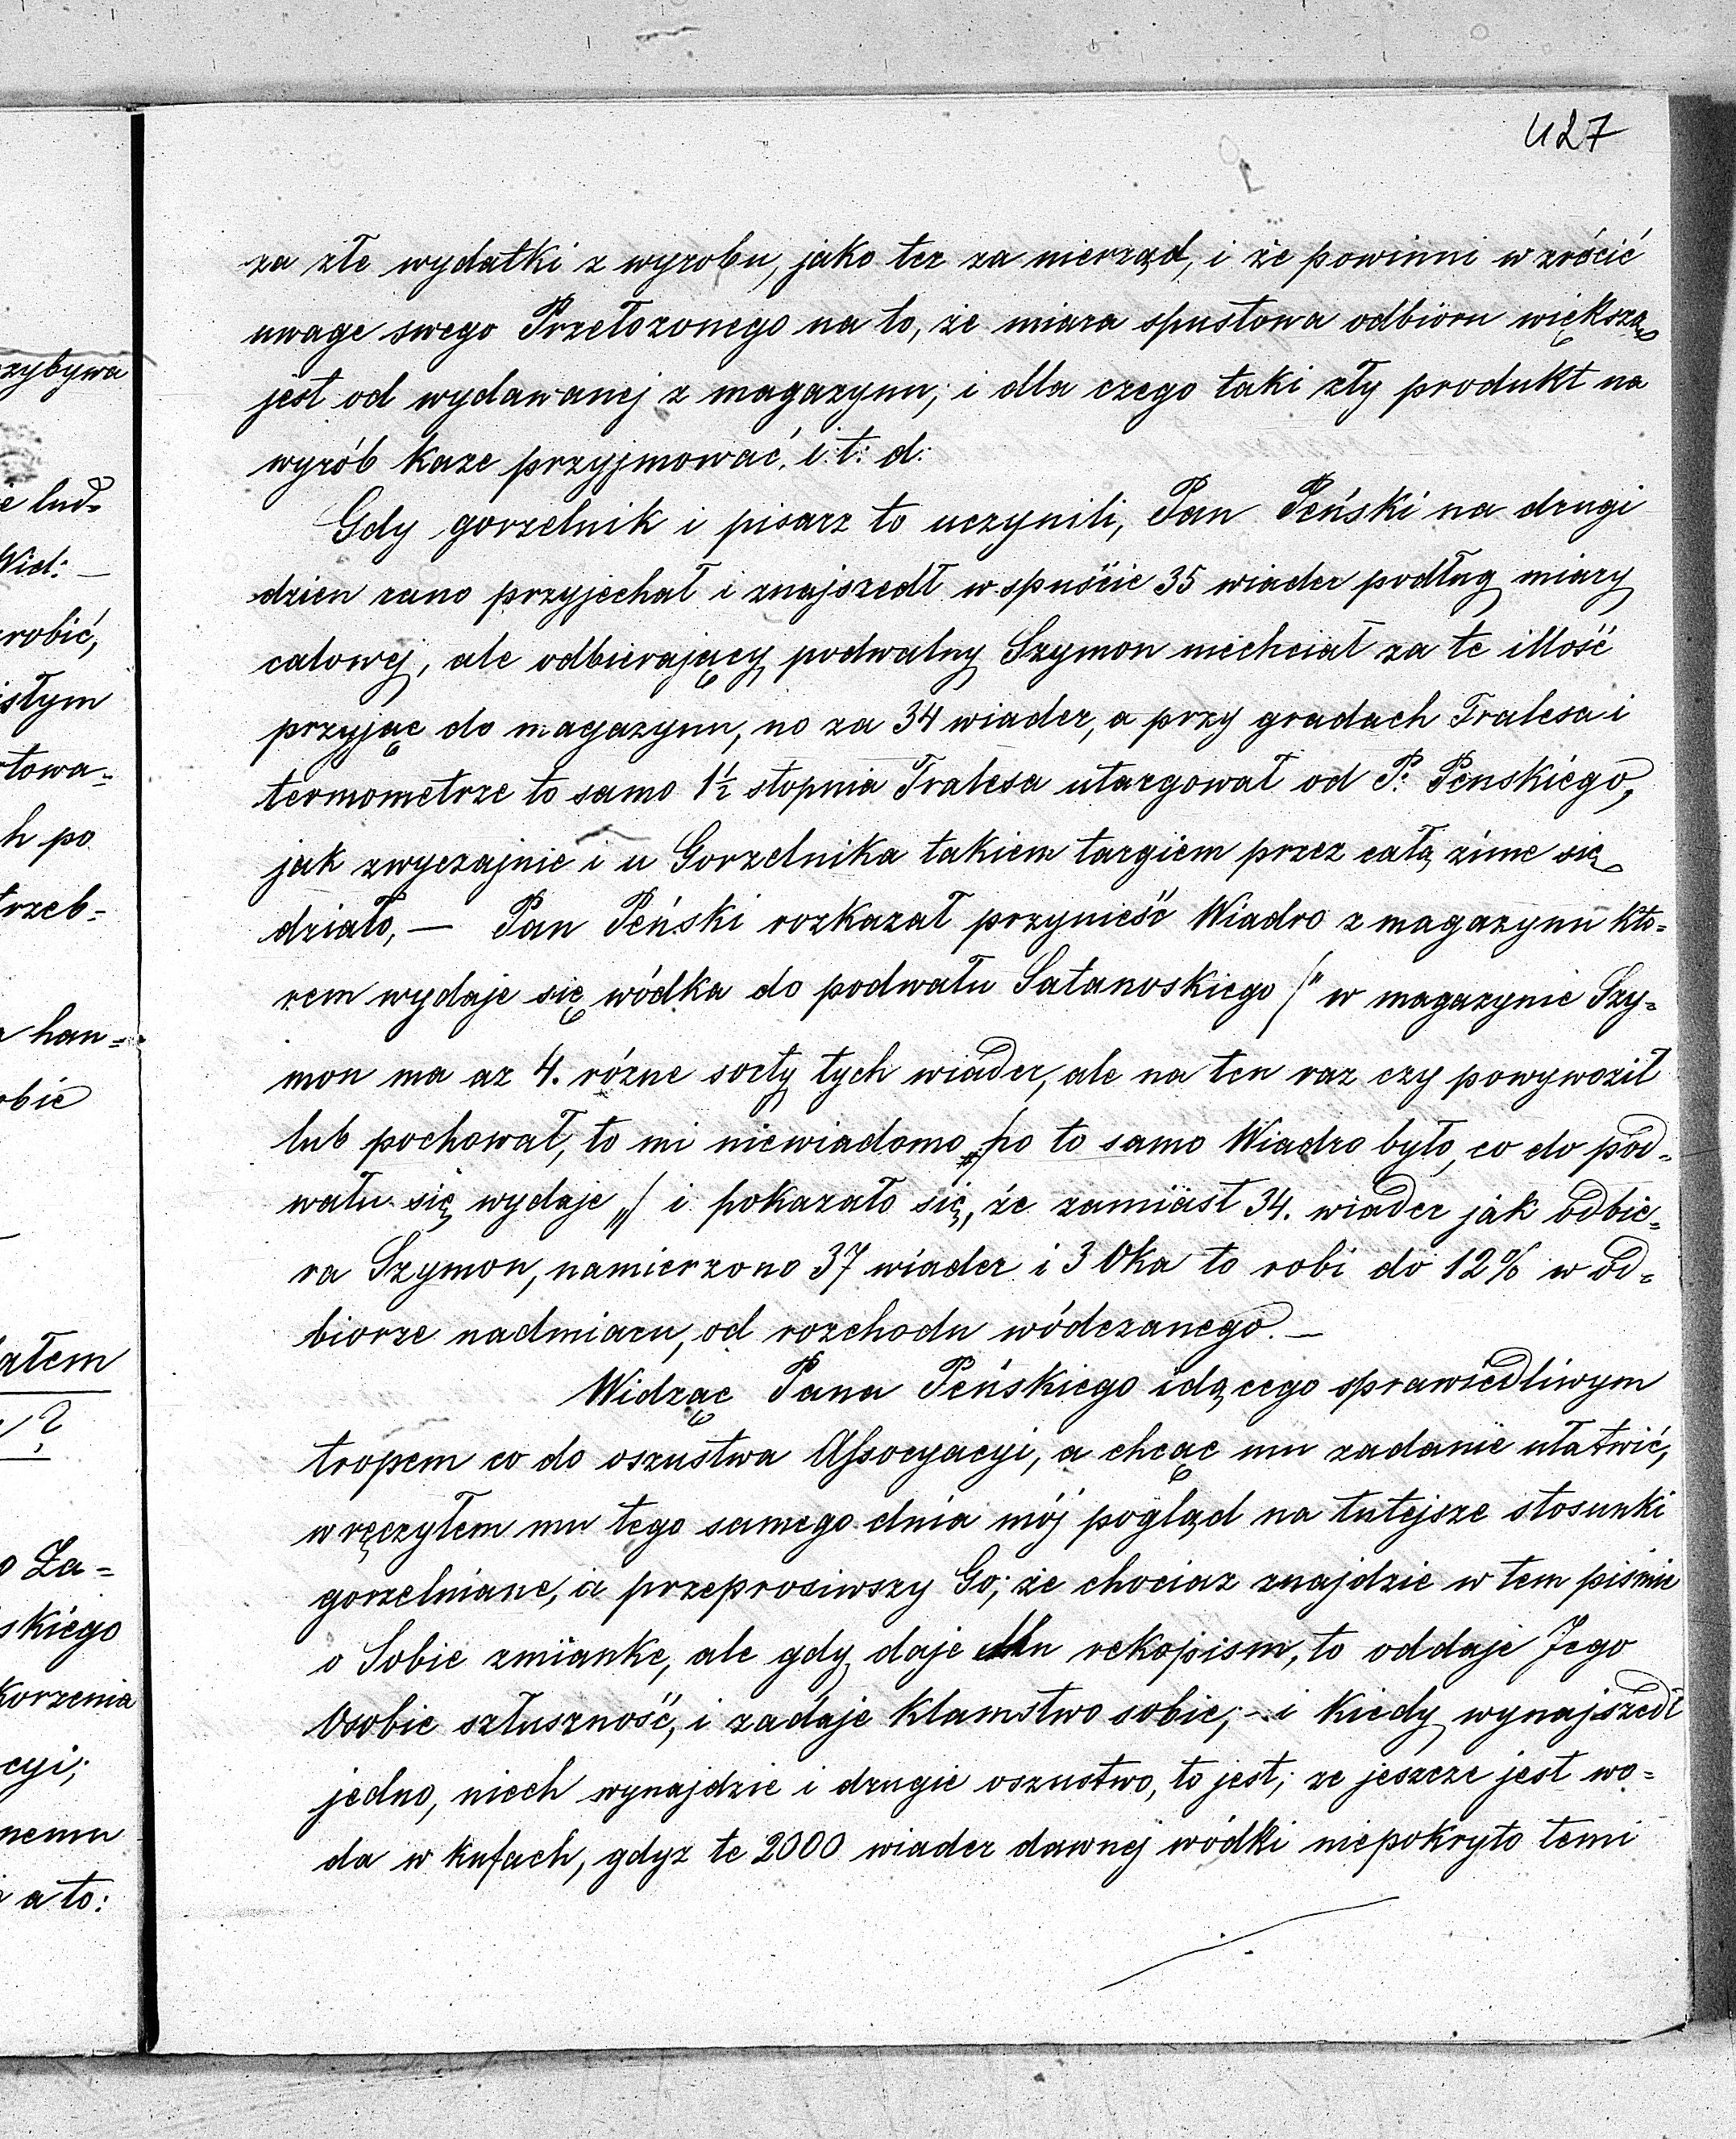 427
za złe wydatki z wyrobu, jako tez za nierząd, i że powinni wzrócić
uwage swego Przełozonego na to, że miara spustowa odbioru większą
jest od wydawanej z magazynu; i dla czego taki zły produkt na
wyrób kaze przyjmować. i. t: d:
Gdy gorzelnik i pisarz to uczynili, Pan Peński na drugi
dzien rano przyjechał i znajszedł w spuście 35 wiader podług miary
calowej, ale odbierający podwalny Szymon niechciał za te illość
przyjąc do magazynu, no za 34 wiader, a przy gradach Tralesa i
termometrze to samo 1½ stopnia Tralesa utargował od P: Penskiégo,
jak zwyczajnie i u Gorzelnika takiem targiem przez całą zime się
działo, — Pan Peński rozkazał przynieść Wiadro z magazynu kto=
rem wydaje się wódka do podwału Satanoskiego /" w magazynie Szy=
mon ma az 4. rózne sorty tych wiader, ale na ten raz czy powywoził
lub pochował, to mi niewiadomo, po to samo Wiadro było, co do pod=
wału się wydaje „/ i pokazało się, że zamiast 34. wiader jak odbie=
ra Szymon, namierzono 37 wiader i 3 Oka to robi do 12% w od=
biorze nadmiaru, od rozchodu wódczanego. —
Widząc Pana Peńskiego idącego sprawiedliwym
tropem co do oszustwa Assocyacyi, a chcąc mu zadanie ułatwić,
wręczyłem mu tego samego dnia mój pogląd na tutejsze stosunki
gorzelniane, a przeprosiwszy Go; że chociaz znajdzie w tem piśmie
o Sobie zmianke, ale gdy daje Mu rekopism, to oddaje Jego
Osobie szłuszność, i zadaje kłamstwo sobie; – i kiedy wynajszedł
jedno, niech wynajdzie i drugie oszustwo, to jest; ze jeszcze jest wo=
da w kufach, gdyz te 2000 wiader dawnej wódki niepokryto temi
zybywa
e lud=
Wid: —
robić,
istym
rtowa=
h po
trzeb=
han=
obie
ałem
?
o Za=
skiégo
korzenia
cyi;
nemu
a to: